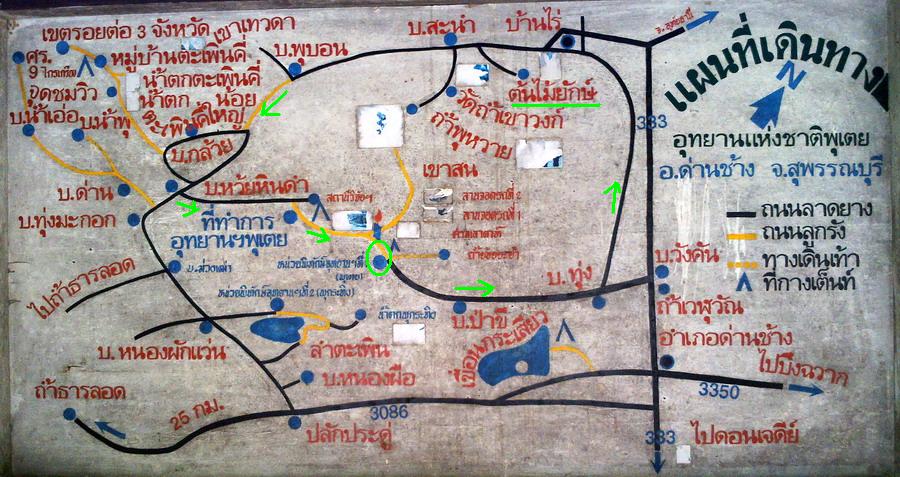 เขตรอยต่อ 3 จังหวัด
เขาเทวดา
บ.สะนำ
บ้านไร่
แผนที่เดินทาง
N
ศร.
หมู่บ้านตะเพินคี่
บ.พุบอน
น้ำตกตะเพินคี่น้อย
ตะเพินคี่ใหญ่
จุดชมวิว
บ.น้ำพุ
ต้นไม้ยักษ์
วัดถ้ำเขาวงก์
ถ้ำพุหวาย
333
อุทยานแห่งชาติพุเตย
อ.ด่านช้าง จ.สุพรรณบุรี
บ.กล้วย
เขาสน
บ.ห้วยหินดำ
บ.ด่าน
บ.ทุ่งมะกอก
ที่ทำการ
อุทยานฯพุเตย
ลานจอดรถที่ 2
ลานจอดรถที่ 1
ถนนลาดยาง
ถนนลูกรัง
ทางเดินเท้า
ที่กางเต็นท์
บ.วังคัน
ไปถ้ำธารลอด
บ.ทุ่ง
ถ้ำเวฬุวัณ
บ.ป่าขี
เขื่อนกระเสียว
อำเภอด่านช้าง
บ.หนองผักแว่น
ลำตะเพิน
ไปบึงฉวาก
3350
บ.หนองผือ
ถ้ำธารลอด
25 กม.
3086
ปลักประดู่
333
ไปดอนเจดีย์